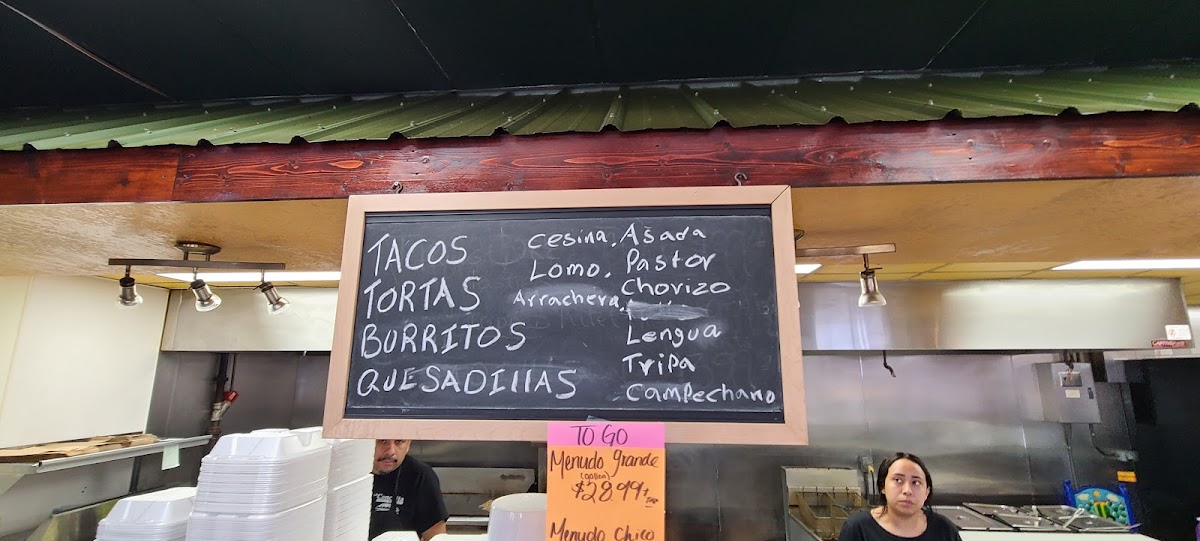 TACOS
TORTAS
BURRITOS
QUESADIllAS
Cesina, Asada
Lomo, Pastor
Arrachera, Chorizo
Lengua
Tripa
Campechano
TO GO
Menudo grande
(gallon)
$28.99 +
TAX
Menudo Chico